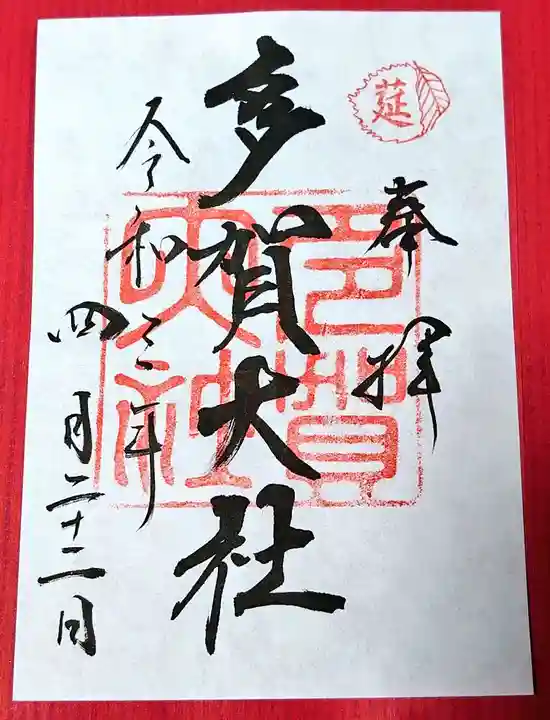 莚
奉拝
多賀大社
多賀大社
令和三年
四月二十二日